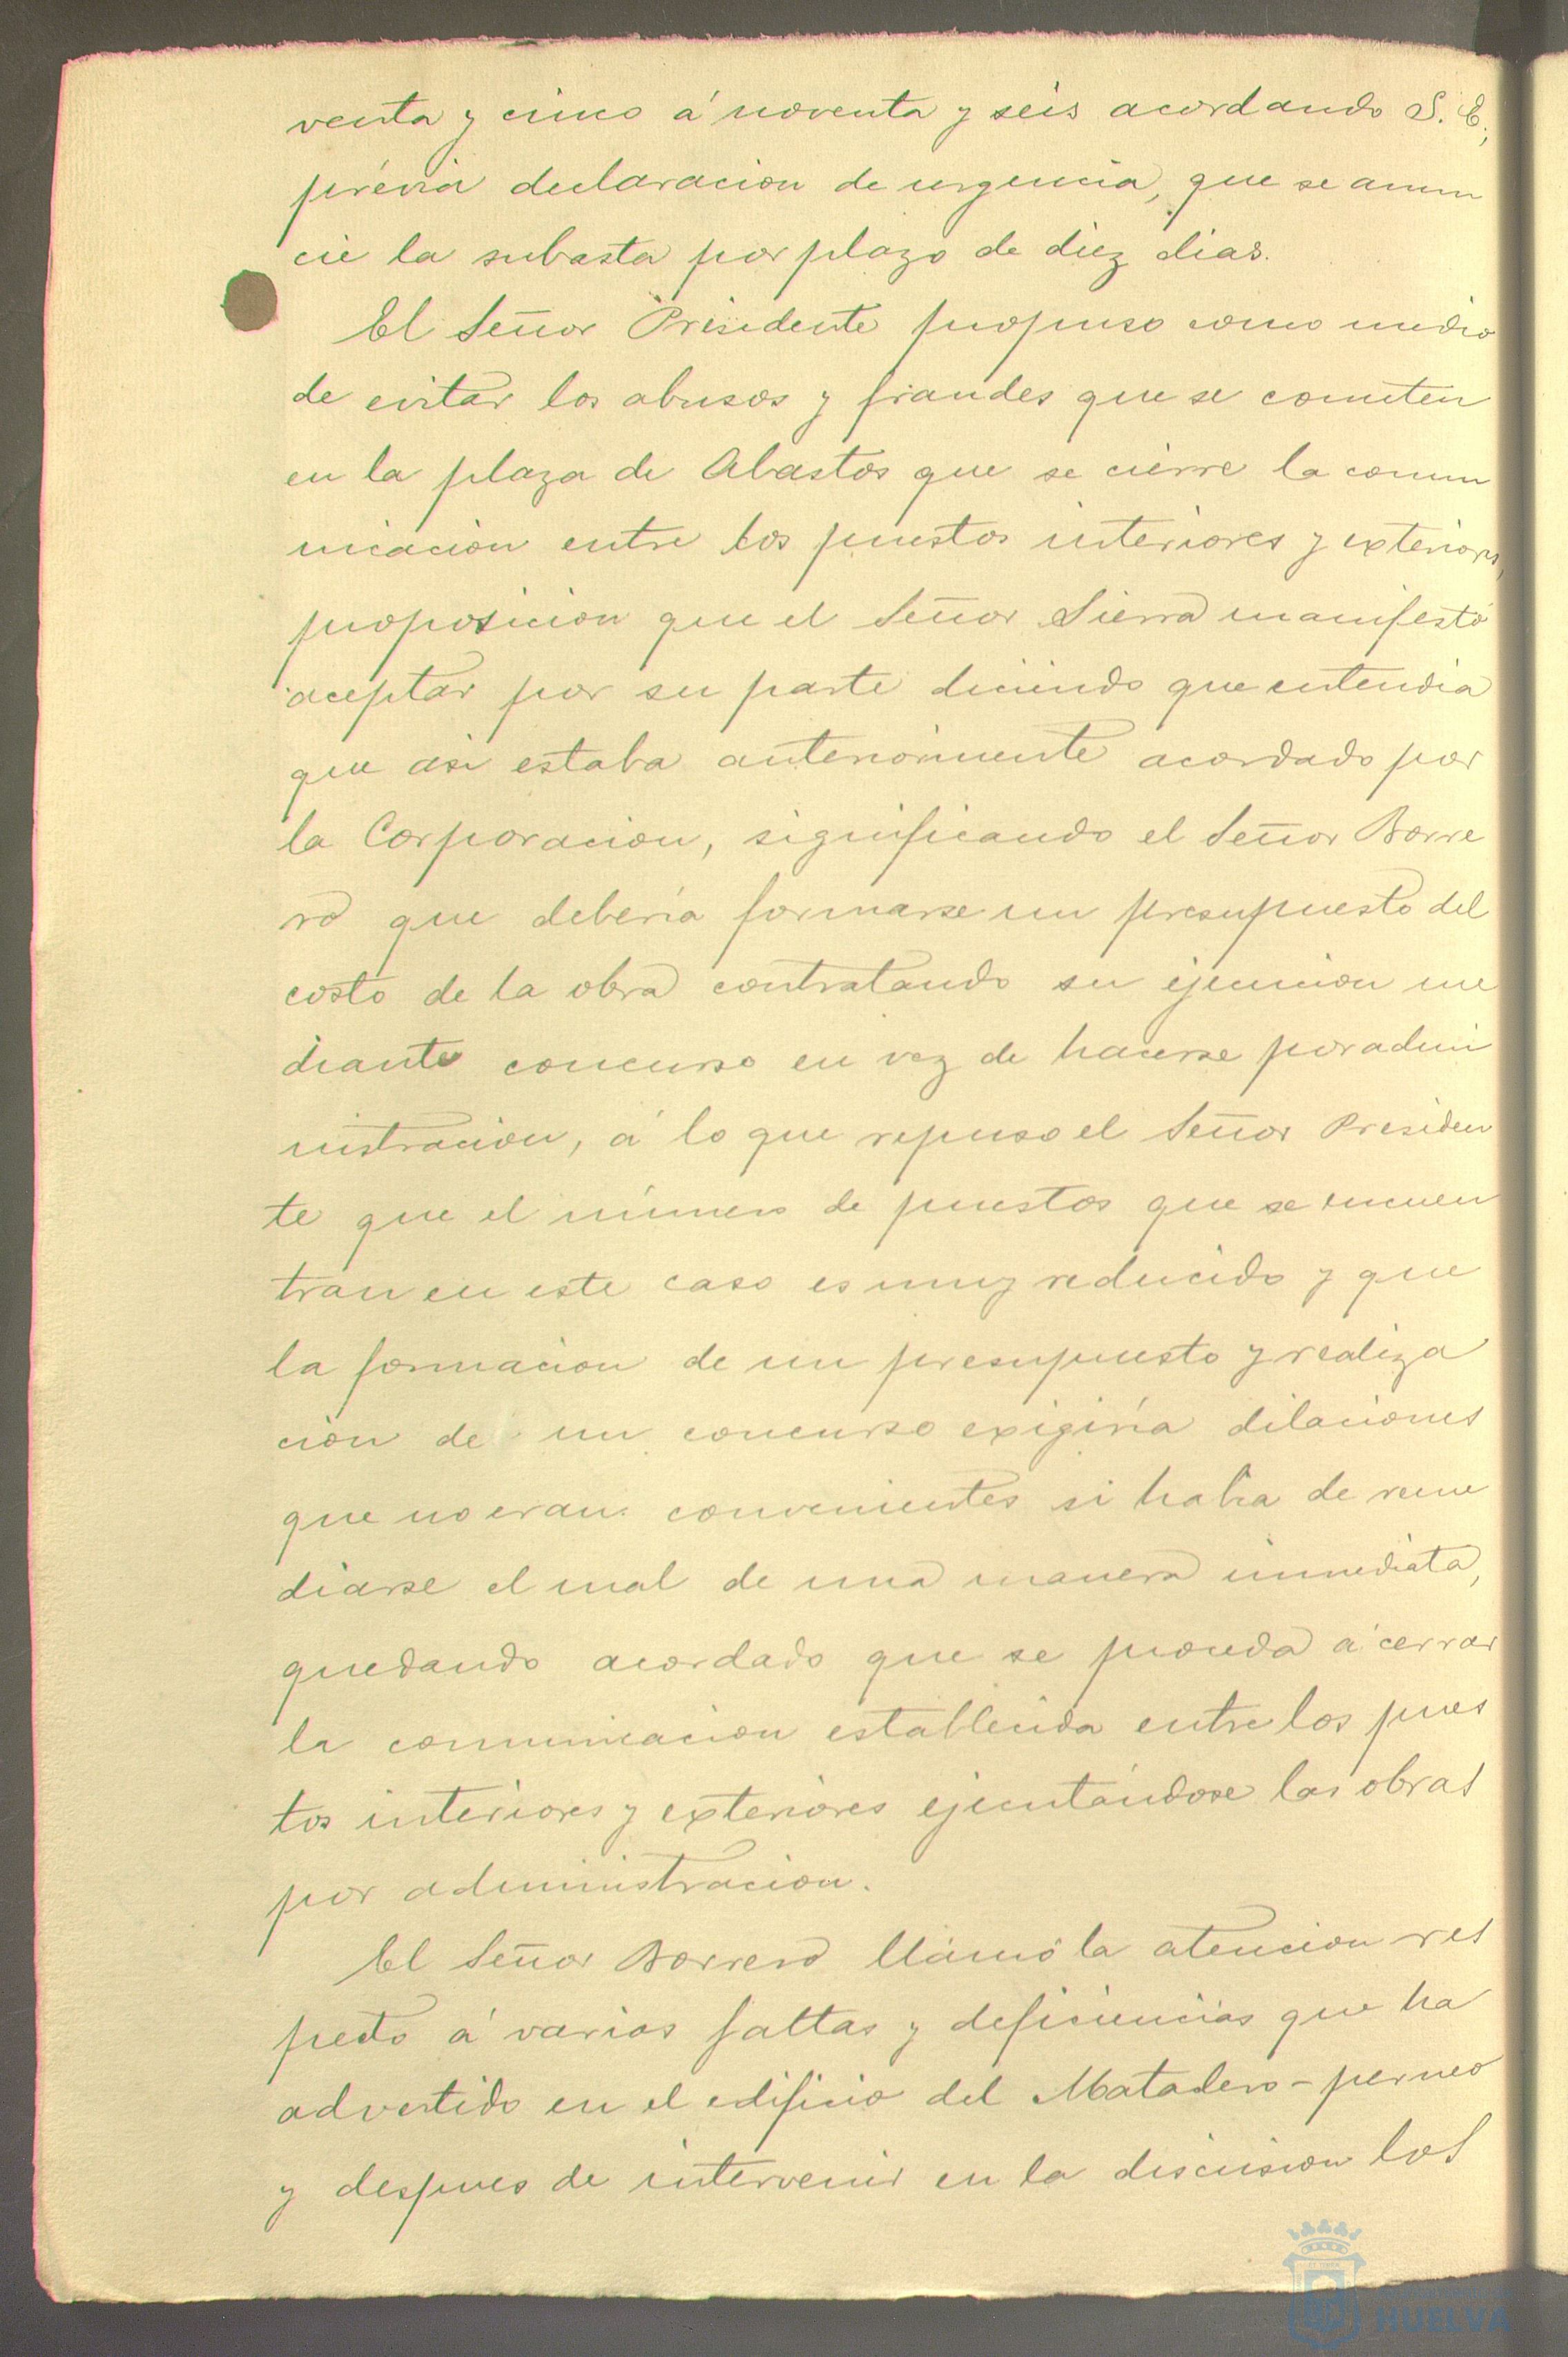 venta y cinco á noventa y seis acordando S. E.,
prévia declaracion de urgencia, que se anun
cie la subasta por plazo de diez dias.
El Señor Presidente propuso como medio
de evitar los abusos y fraudes que se cometen
en la plaza de Abastos que se cierre la comu
nicacion entre los puestos interiores y exteriores,
proposicion que el Señor Sierra manifestó
aceptar por su parte diciendo que entendia
que asi estaba anteriormente acordado por
la Corporacion, significando el Señor Borre
ro que debería formarse un presupuesto del
costo de la obra contratando su ejecucion me
diante concurso en vez de hacerse por admi
nistracion, á lo que repuso el Señor Presiden
te que el número de puestos que se encuen
tran en este caso es muy reducido y que
la formacion de un presupuesto y realiza
cion de un concurso exigiría dilaciones
que no eran convenientes si habia de reme
diarse el mal de una manera inmediata,
quedando acordado que se proceda á cerrar
la comunicacion establecida entre los pues
tos interiores y exteriores ejecutándose las obras
por administracion.
El Señor Borrero llamó la atencion res
pecto á varias faltas y deficiencias que ha
advertido en el edificio del Matadero-perneo
y despues de intervenir en la discusion los
HUELVA